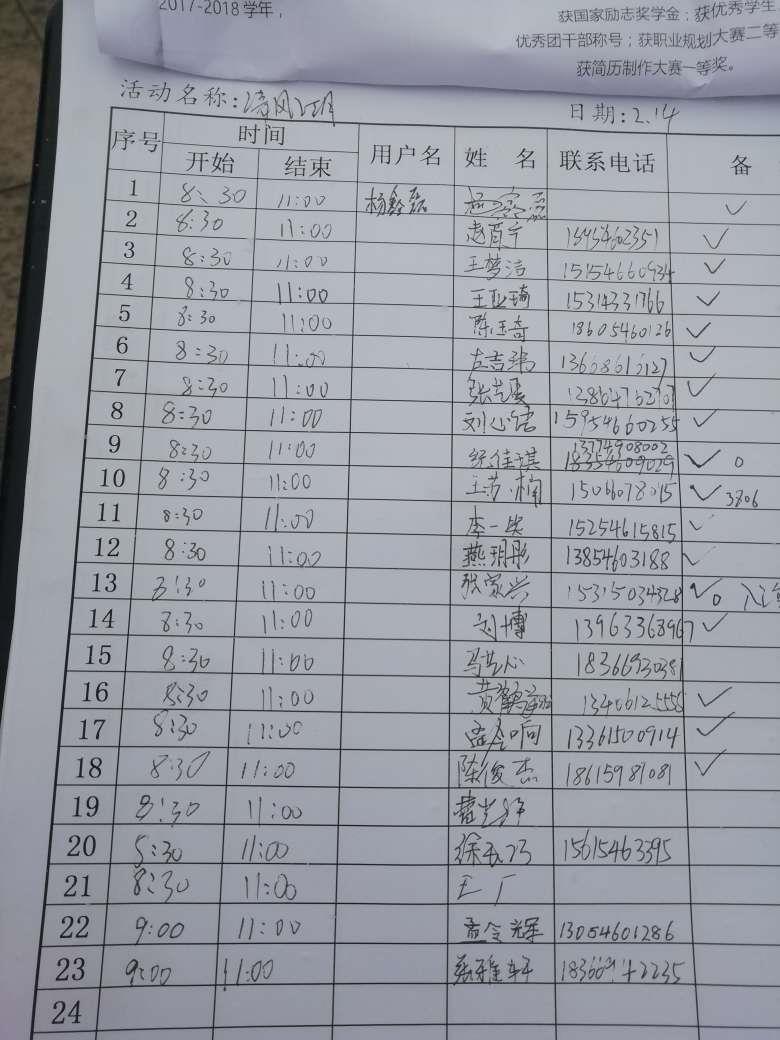 2017-2018学年，
获国家励志奖学金；获优秀学生
优秀团干部称号；获职业规划大赛二等
获简历制作大赛一等奖。
活动名称： 日期：2.14
序号 时间 用户名 姓 名 联系电话 备
开始 结束
1 8:30 11:00 ✓
2 8:30 11:00 ✓
3 8:30 11:00 王梦洁 15154660934 ✓
4 8:30 11:00 王亚琦 15314331766 ✓
5 8:30 11:00 陈玉奇 18605460126 ✓
6 8:30 11:00 ✓
7 8:30 11:00 ✓
8 8:30 11:00 刘心语 15954660255 ✓
9 8:30 11:00 徐佳琪 13774908002 18354609029 ✓ 0
10 8:30 11:00 15066078015 ✓ 3806
11 8:30 11:00 李一 15254615815 ✓
12 8:30 11:00 燕玥彤 13854603188 ✓
13 8:30 11:00 张家兴 15315034328 ✓ 0
14 8:30 11:00 刘博 13963368967 ✓
15 8:30 11:00 18366930381
16 8:30 11:00 13406125558 ✓
17 8:30 11:00 孟令响 13361500914 ✓
18 8:30 11:00 陈俊杰 18615981081 ✓
19 8:30 11:00
20 8:30 11:00 15615463395
21 8:30 11:00
22 9:00 11:00 孟令辉 13054601286
23 9:00 11:00
24